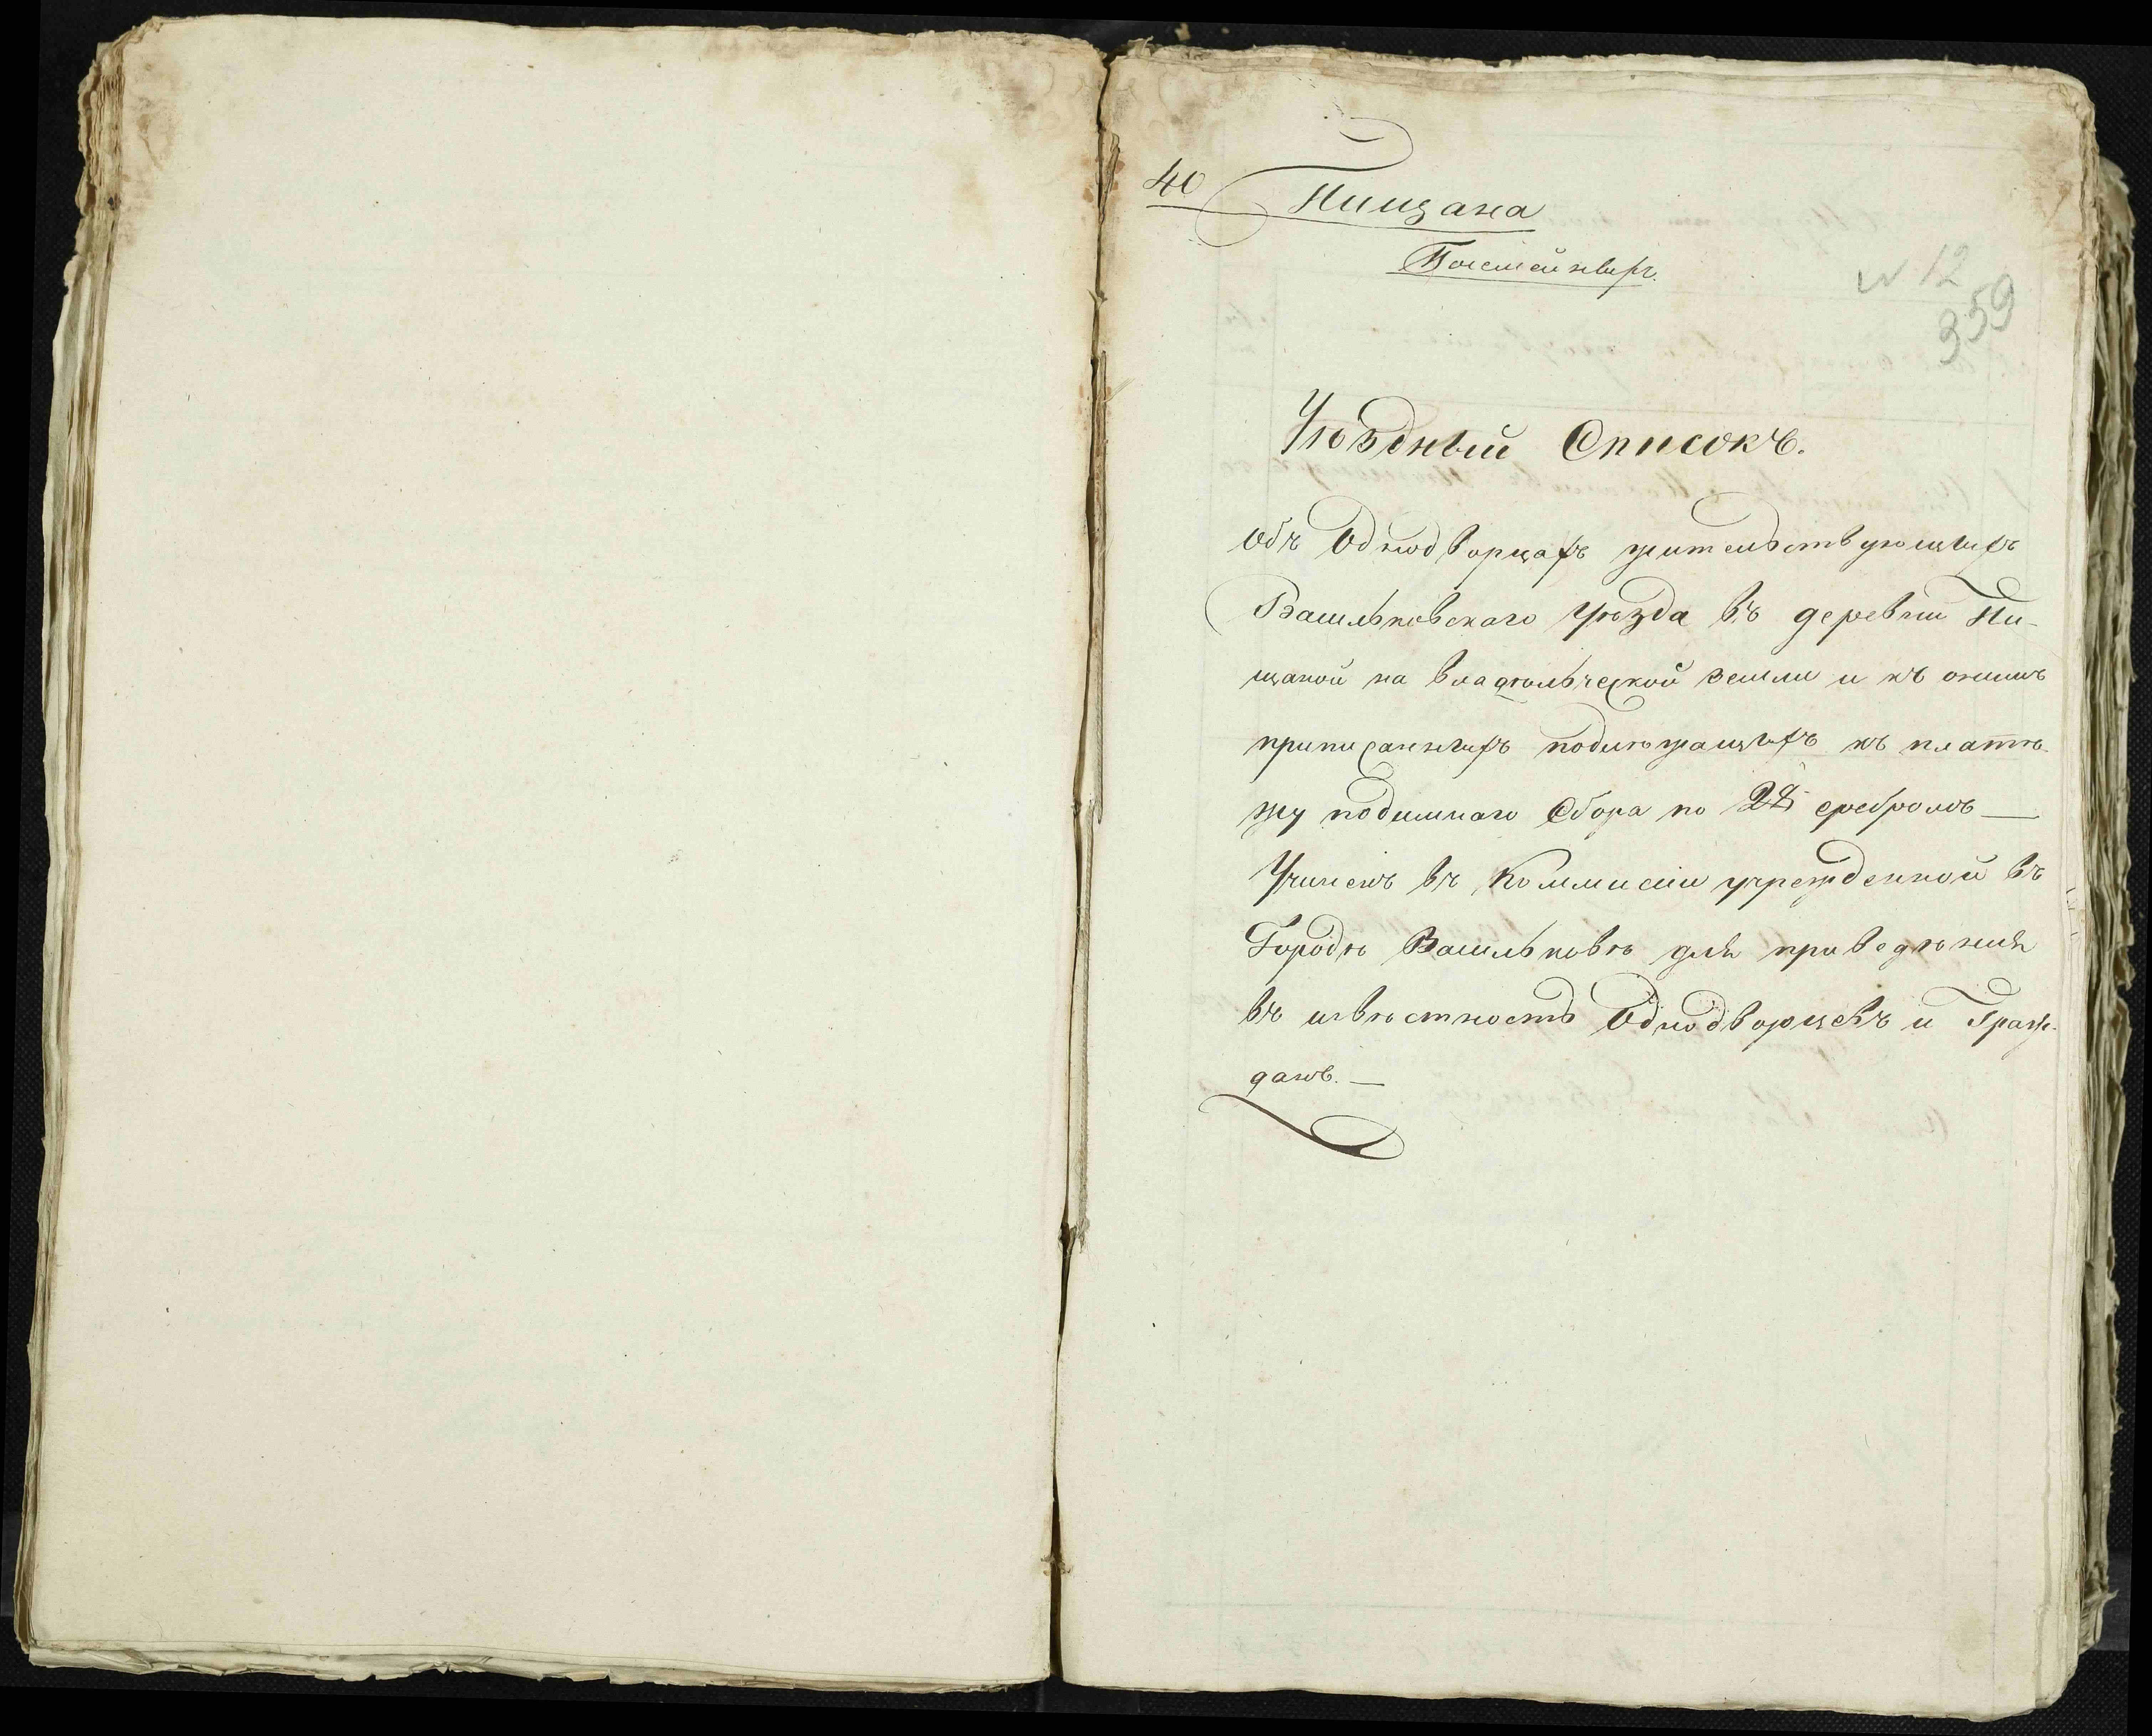 40 Пищана
N 12
359
Уѣздный Списокъ.
объ Однодворцахъ жительствующихъ
Васильковскаго Уѣзда въ деревни Пи-
щаной на владѣльческой земли и къ онымъ
приписанныхъ подлѣжащихъ къ платѣ-
жу подымнаго Сбора по сребромъ —
Учиненъ въ Коммисіи учрежденной въ
Городѣ Васильковѣ для приведѣнія
въ извѣстность Однодворцевъ и Граж-
данъ. —